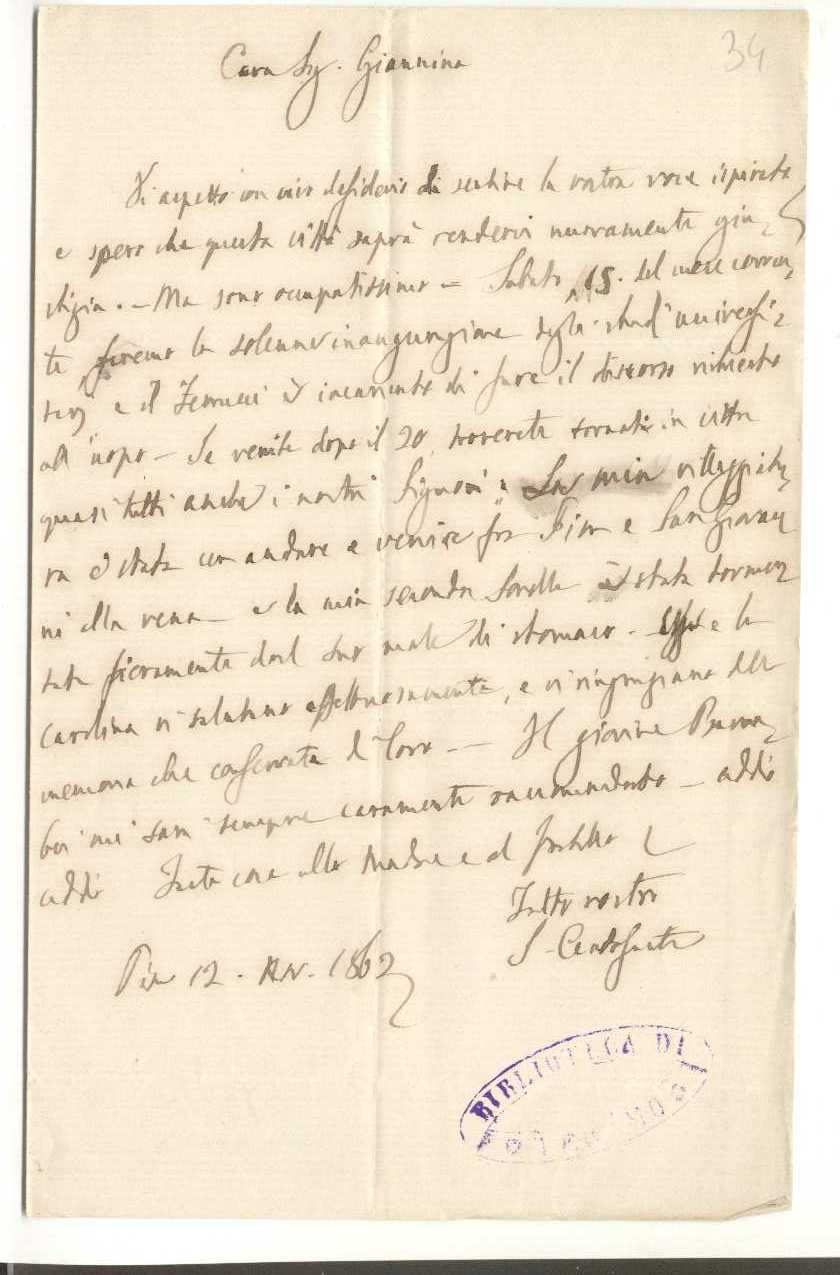 34
Cara Sig. Giannina
Vi aspetto con vivo desiderio di sentire la vostra voce ispirata
e spero che questa città saprà rendervi nuovamente giu-
stizia. — Ma sono occupatissimo — Sabato, 15. del mese corren-
te, faremo la solenne inaugurazione degli studi universi-
tarj e il Ferrucci è incaricato di fare il discorso richiesto
all'uopo — Se venite dopo il 20, troverete tornati in città
quasi tutti anche i nostri Signori. La mia villeggiatu-
ra è stata un andare e venire fra Pisa e San Giovan-
ni alla vena — e la mia seconda Sorella è stata tormen-
tata fieramente dal suo male di stomaco. Essa e la
Carolina vi salutano affettuosamente, e vi ringraziano della
memoria che conservate di loro — Il giovine
mi sarà sempre caramente raccomandato — addio
addio Tante cose alla Madre e al fratello
Tutto vostro
S. Centofanti
Pisa 12. Nov. 1862
BIBLIOTECA DI